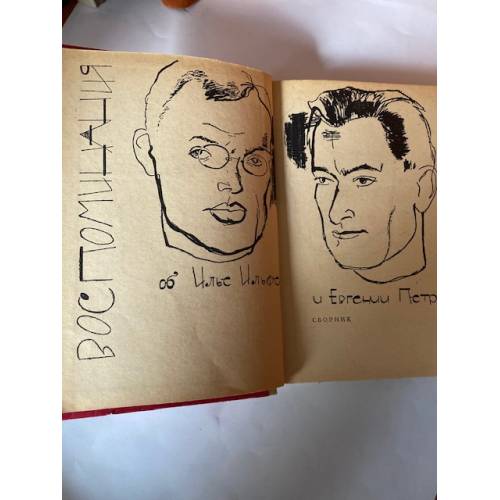 ВОСПОМИНАНИЯ
об Илье Ильфе
и Евгении Петр
СБОРНИК